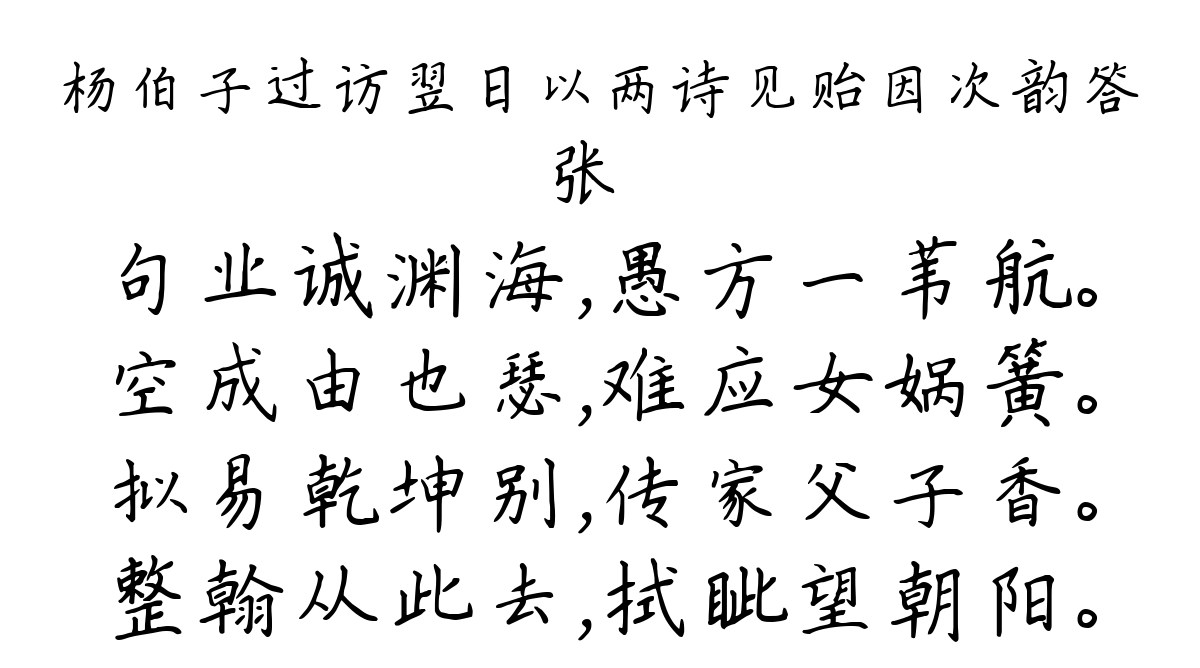 杨伯子过访翌日以两诗见贻因次韵答
张
句业诚渊海,愚方一苇航。
空成由也瑟,难应女娲簧。
拟易乾坤别,传家父子香。
整翰从此去,拭眦望朝阳。